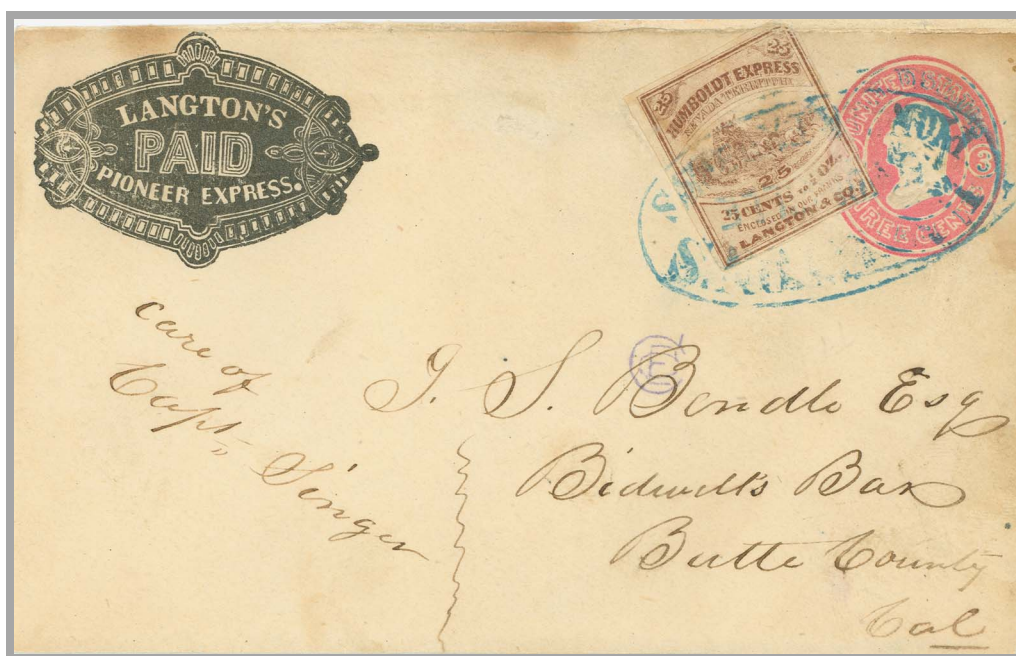 LANGTON'S
PAID
PIONEER EXPRESS.
25 25
HUMBOLDT EXPRESS
NEVADA TERRITORY
25
25 CENTS pr ½ OZ.
ENCLOSED IN OUR FRANKS
LANGTON & CO.
UNITED STATES
THREE CENTS
care of
Capt. Singer
J. S. Bendle Esq
Bidwell's Bar
Butte County
Cal